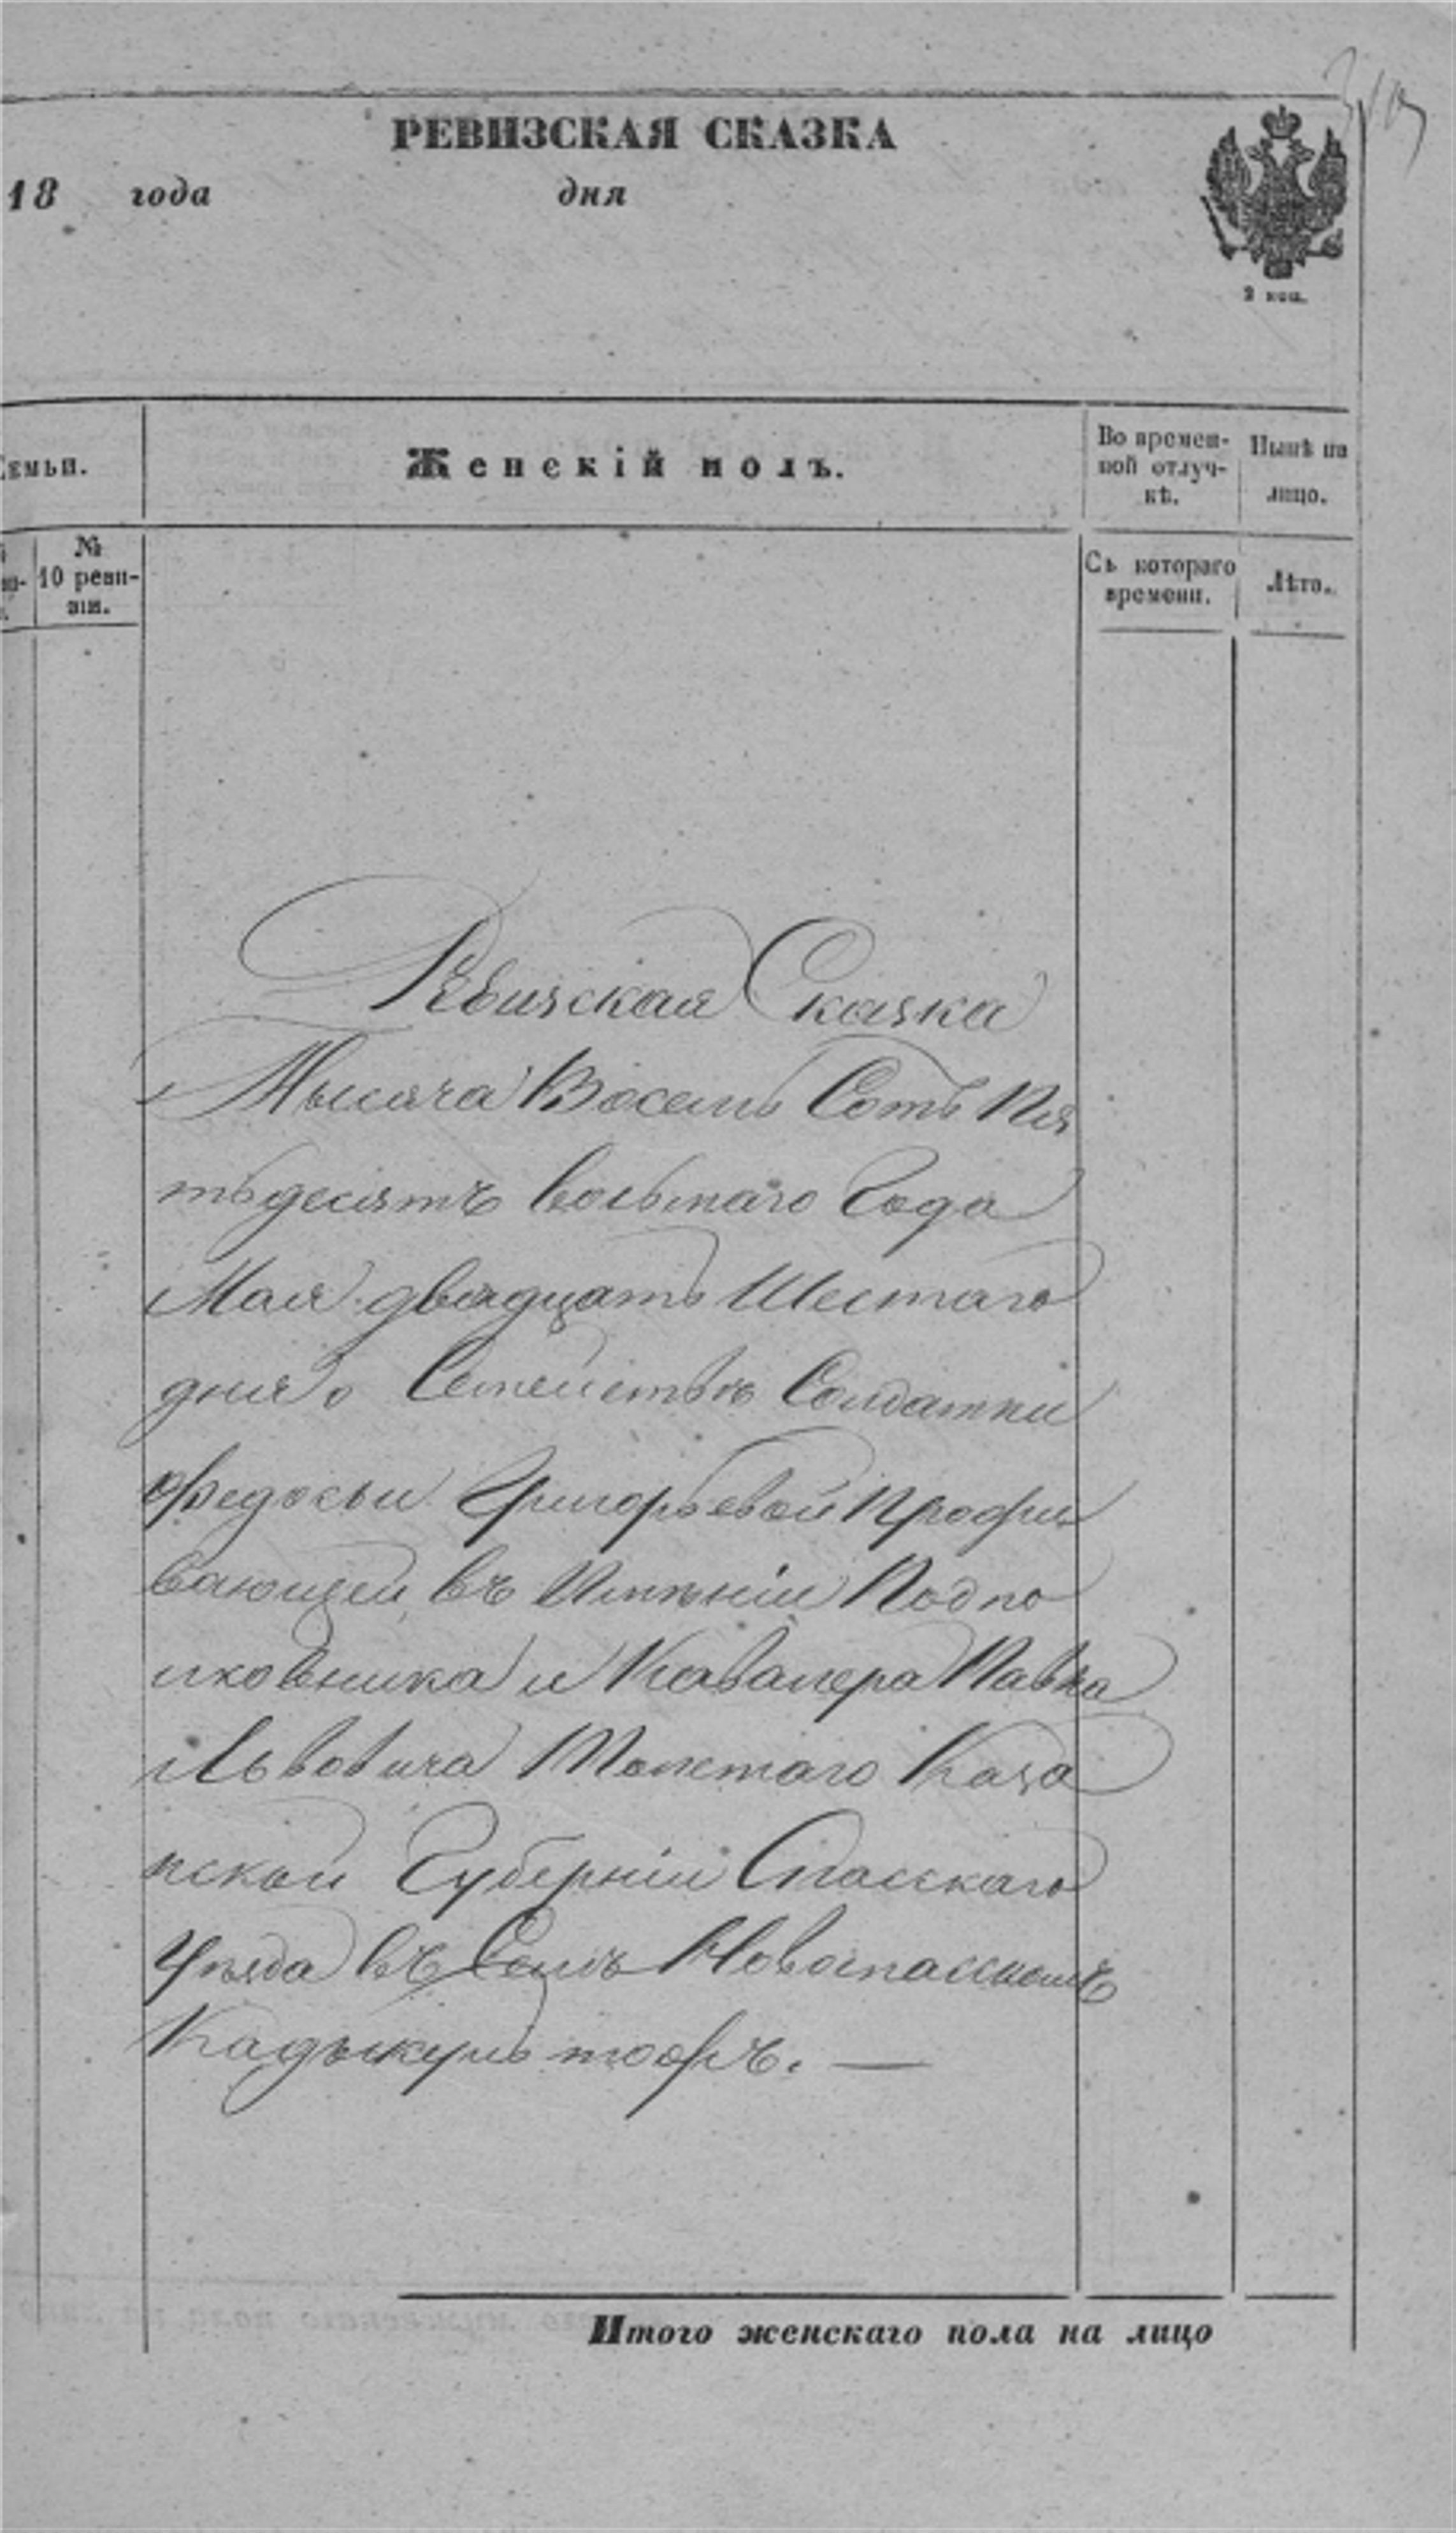 РЕВИЗСКАЯ СКАЗКА
18 года дня
2 коп.
Семьи.
Женскій полъ.
Во времен-
ной отлуч-
кѣ.
Нынѣ на
лицо.
№
10 реви-
зіи.
Съ котораго
времени.
Лѣта.
Ревизская Сказка
Тысяча Восемь Сотъ Пя
тьдесятъ восьмаго Года
Мая двадцать Шестаго
дня о Семействѣ Солдатки
Федосьи Григорьевой Прожи
вающей въ Имѣніи Подпо
лковника и Кавалера Павла
Львовича Толстаго Каза
нской Губерніи Спасскаго
Уѣзда въ Селѣ Новоспасскомъ
Итого женскаго пола на лицо